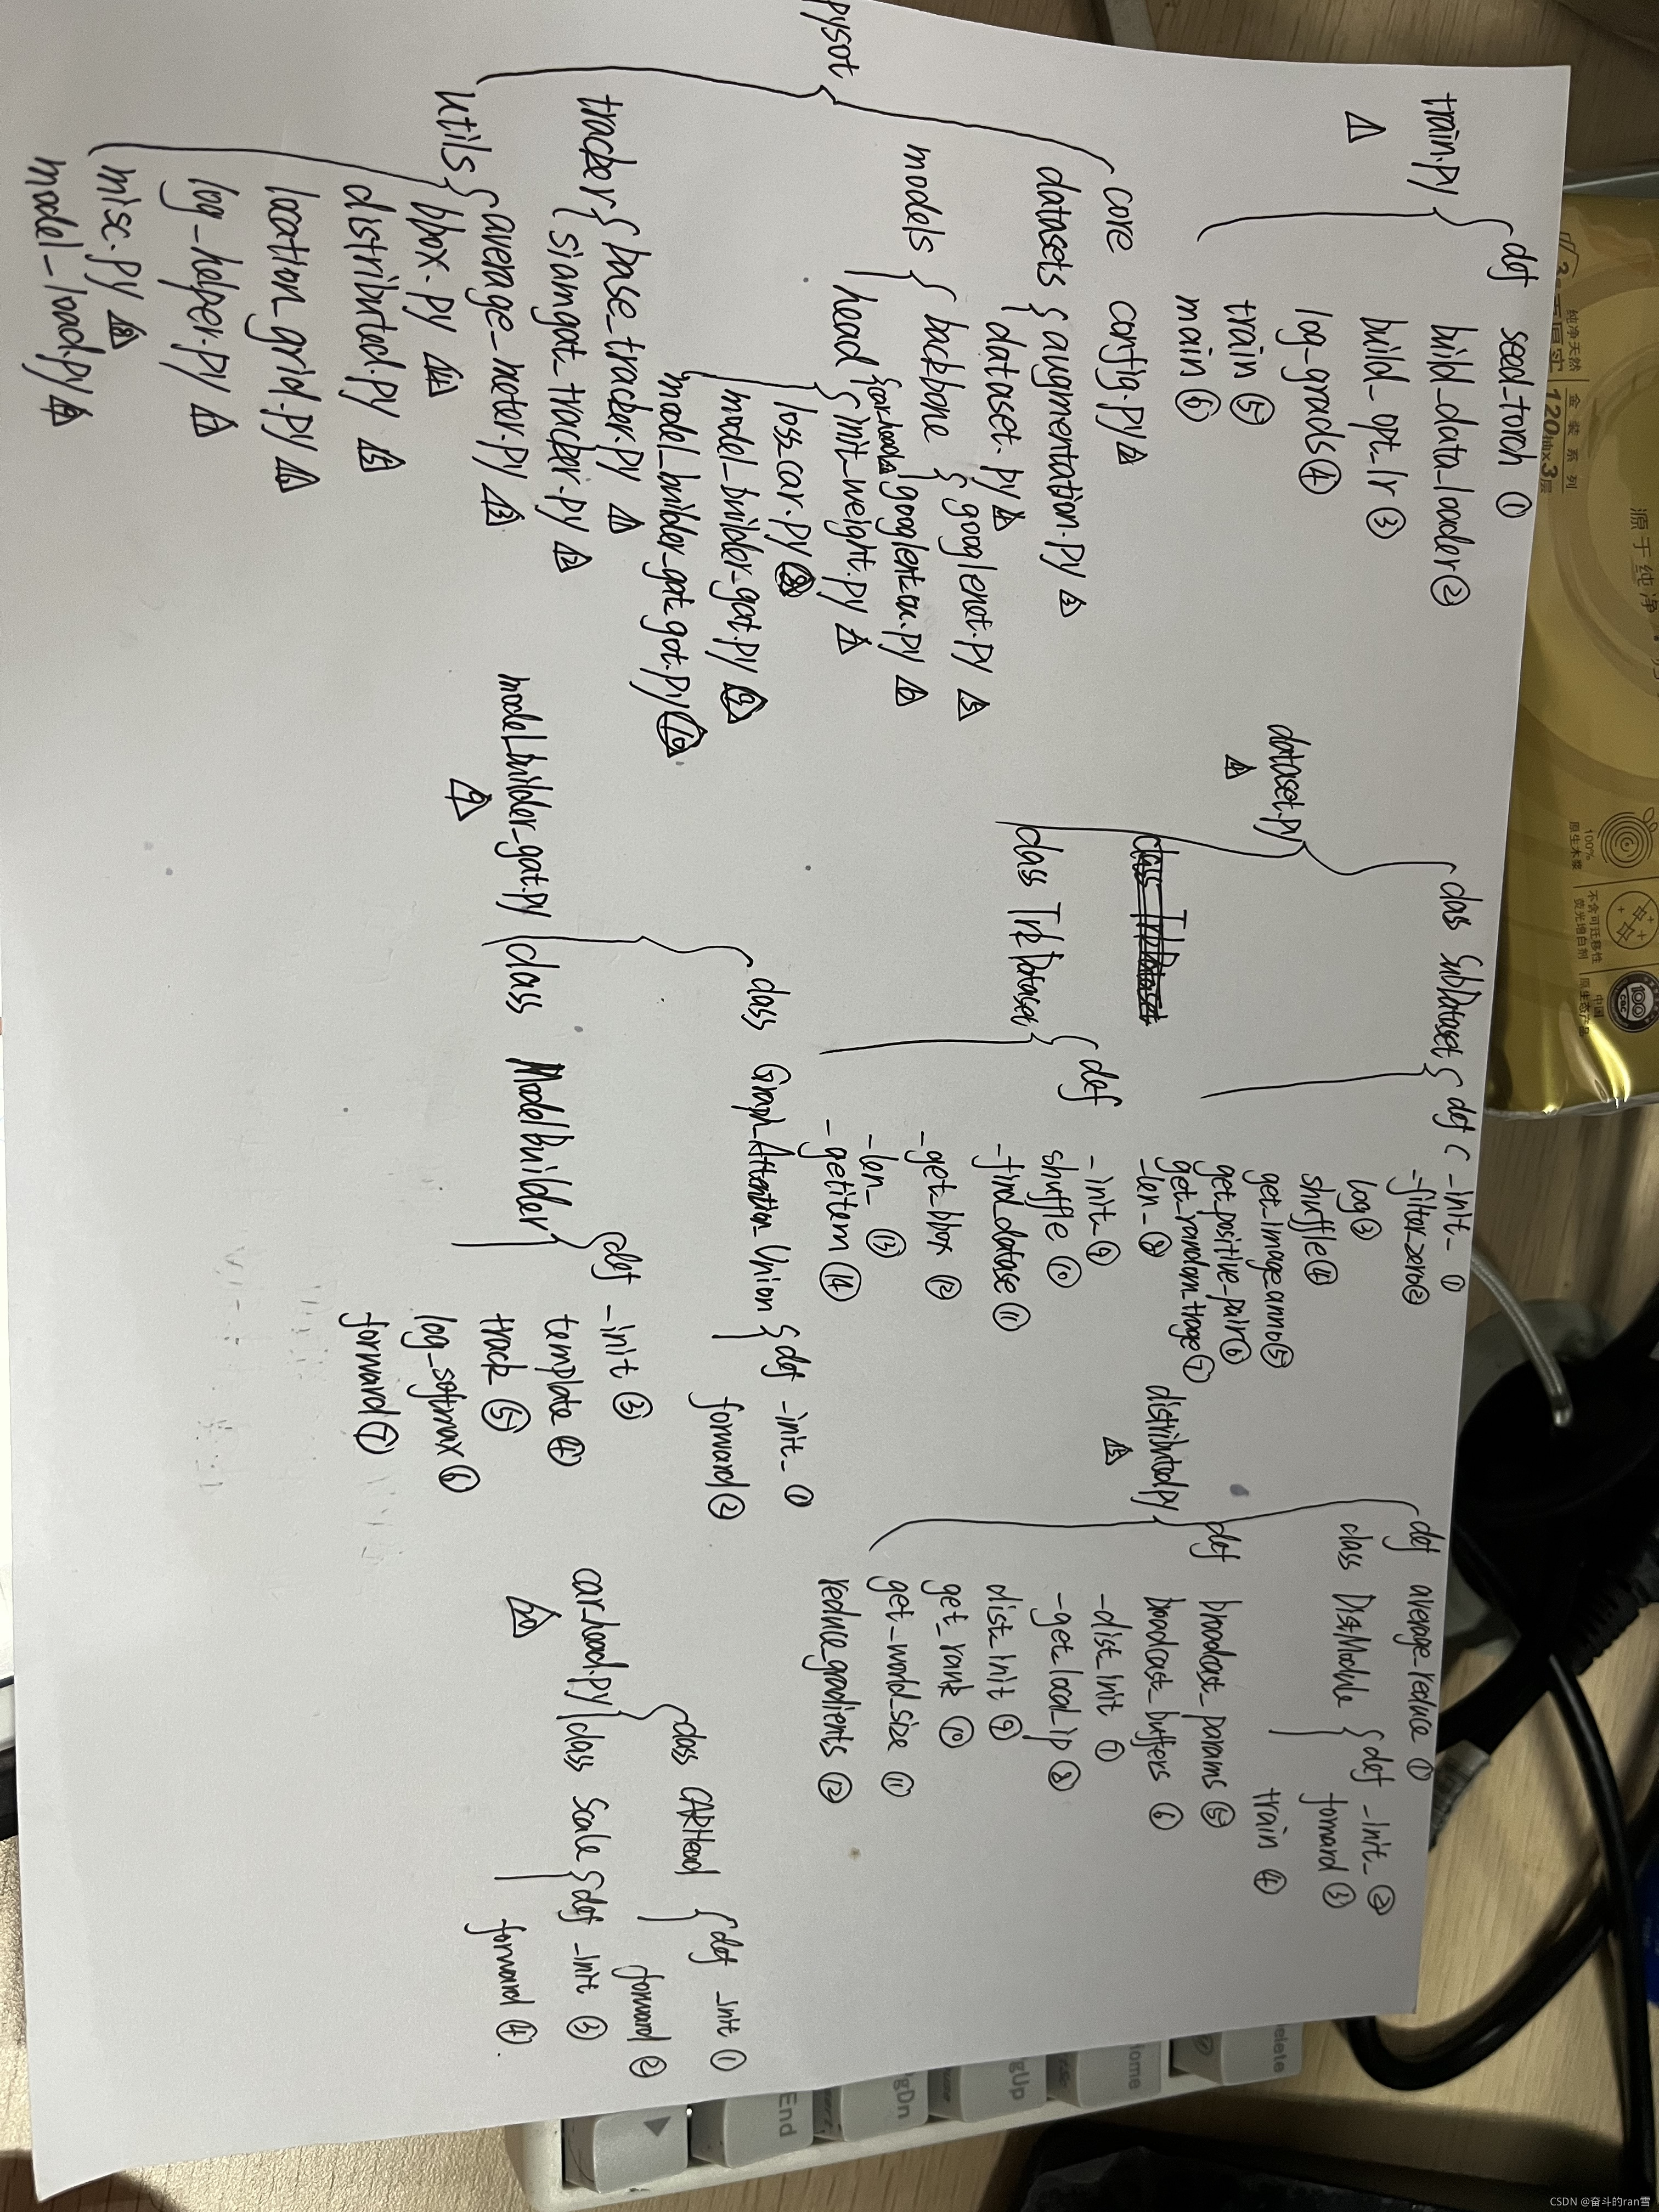 train.py
△1
def seed_torch ①
build_data_loader ②
build_opt_lr ③
log_grads ④
train ⑤
main ⑥
pysot
core config.py △2
datasets
augmentation.py △3
dataset.py △4
models
backbone
googlenet.py △5
googlenet_ou.py △6
head
car_head.py
init_weight.py △7
loss_car.py △8
model_builder_gat.py △9
model_builder_gat_got.py △10
tracker
base_tracker.py △11
siamgat_tracker.py △12
utils
average_meter.py △13
bbox.py △14
distributed.py △15
location_grid.py △16
log_helper.py △17
misc.py △18
model_load.py △19
dataset.py
△4
class SubDataset
def _init_ ①
_filter_zero ②
log ③
shuffle ④
get_image_anno ⑤
get_positive_pair ⑥
get_random_trage ⑦
_len_ ⑧
class TrkDataset
class TrkDataset
def _init_ ⑨
shuffle ⑩
_find_datase ⑪
_get_bbox ⑫
_len_ ⑬
_getitem ⑭
model_builder_gat.py
△9
class Graph_Attention_Union
def _init_ ①
forward ②
class ModelBuilder
def _init ③
template ④
track ⑤
log_softmax ⑥
forward ⑦
distributed.py
△15
def average_reduce ①
class DistModule
def _init_ ②
forward ③
train ④
def broadcast_params ⑤
broadcast_buffers ⑥
_dist_init ⑦
_get_local_ip ⑧
dist_init ⑨
get_rank ⑩
get_world_size ⑪
reduce_gradients ⑫
car_head.py
△20
class CARHead
def _init ①
forward ②
class Scale
def _init ③
forward ④
纯净天然
金装系列
120抽x3层
源于纯净
100%
原生木浆
不含可迁移性
荧光增白剂
中国
原生态产品
100
elete
Home
gUp
gDn
End
CSDN @奋斗的ran雪